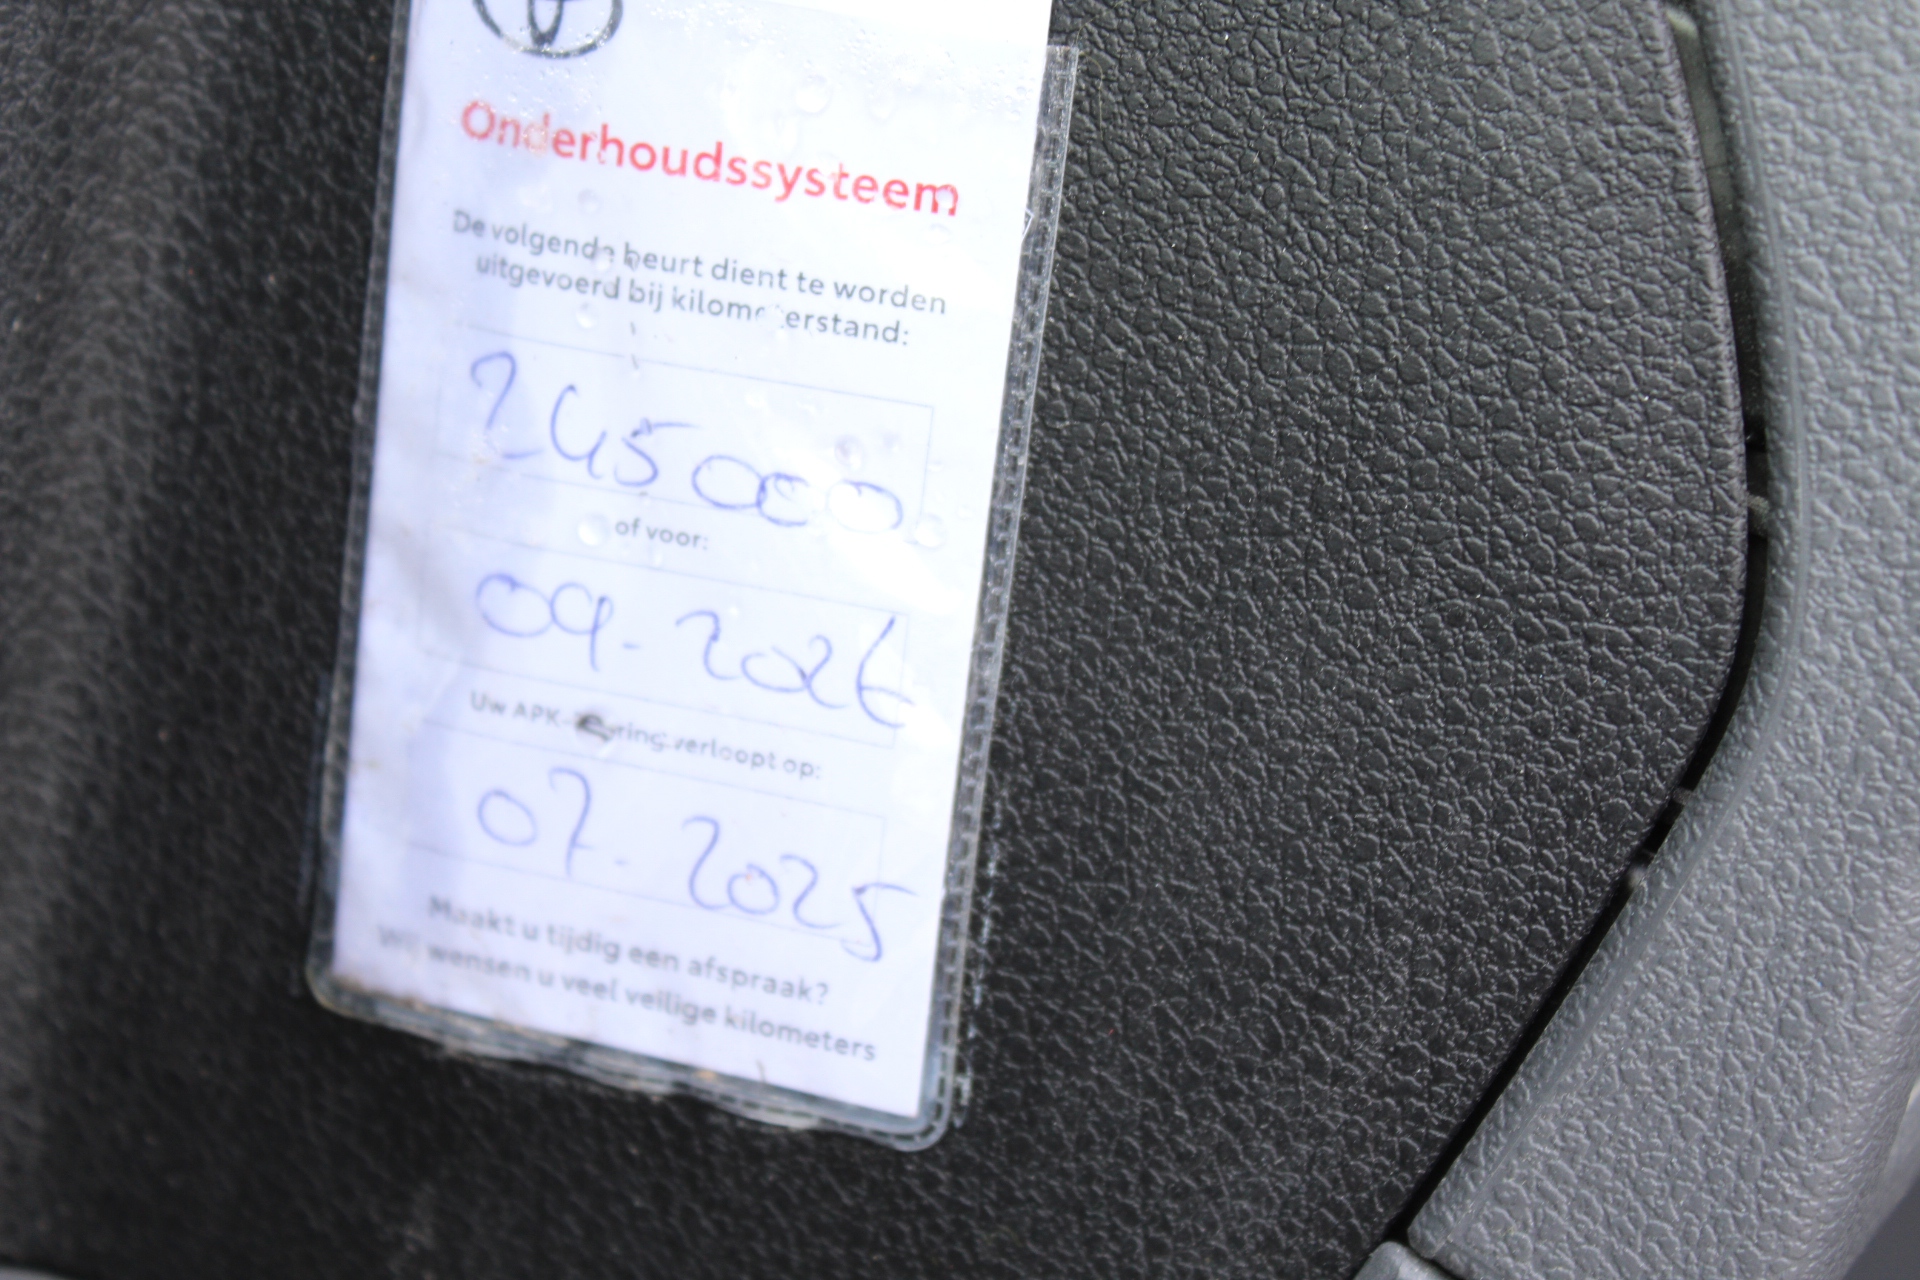 Onderhoudssysteem
De volgende beurt dient te worden
uitgevoerd bij kilometerstand:
245000
of voor:
09-2026
Uw APK-keuring verloopt op:
07-2025
Maakt u tijdig een afspraak?
Wij wensen u veel veilige kilometers